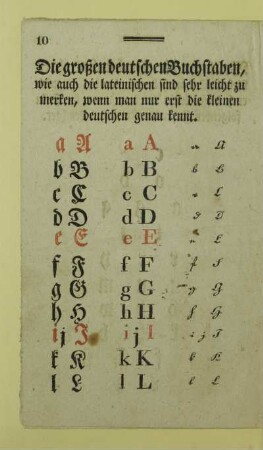 10
Die großen deutschen Buchstaben,
wie auch die lateinischen sind sehr leicht zu
merken, wenn man nur erst die kleinen
deutschen genau kennt.
a A a A a A
b B b B b B
c C c C c C
d D d D d D
e E e E e E
f F f F f F
g G g G g G
h H h H h H
ij I ij I i j I
k K k K k K
l L l L l L